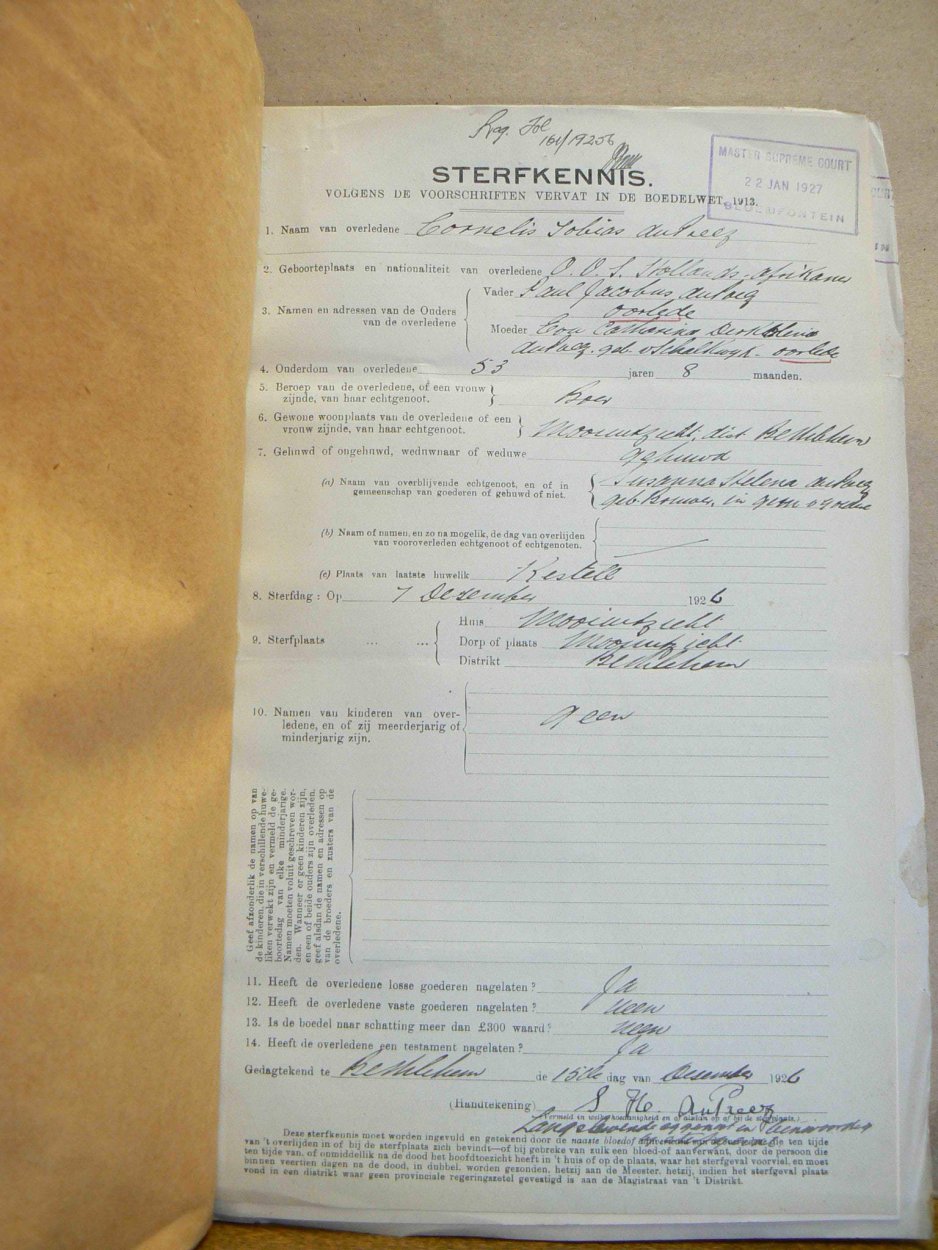 Reg. Fol
161/19256
MASTER SUPREME COURT
22 JAN 1927
BLOEMFONTEIN
STERFKENNIS.
VOLGENS DE VOORSCHRIFTEN VERVAT IN DE BOEDELWET, 1913.
1. Naam van overledene Cornelis Tobias du Preez
2. Geboorteplaats en nationaliteit van overledene O.V.S. Hollands-Afrikaner
3. Namen en adressen van de Ouders van de overledene
Vader Paul Jacobus du Preez
oorlede
Moeder Catharina
du Preez. geb. v Schalkwyk - oorlede
4. Onderdom van overledene 53 jaren 8 maanden.
5. Beroep van de overledene, of een vrouw zijnde, van haar echtgenoot. Boer
6. Gewone woonplaats van de overledene of een vrouw zijnde, van haar echtgenoot. Mooiuitzicht, dist Bethlehem
7. Gehuwd of ongehuwd, weduwnaar of weduwe gehuwd
(a) Naam van overblijvende echtgenoot, en of in gemeenschap van goederen of gehuwd of niet.
Susanna Helena du Preez
geb. in gem v goedere
(b) Naam of namen, en zo na mogelik, de dag van overlijden van vooroverleden echtgenoot of echtgenoten.
(c) Plaats van laatste huwelik Kestell
8. Sterfdag: Op 7 Desember 1926
9. Sterfplaats ... ...
Huis Mooiuitzicht
Dorp of plaats Mooiuitzicht
Distrikt Bethlehem
10. Namen van kinderen van overledene, en of zij meerderjarig of minderjarig zijn. geen
Geef afzonderlik de namen op van
de kinderen, die in verschillende huwe-
liken verwekt zijn en vermeld de ge-
boortedag van elke minderjarige.
Namen moeten voluit geschreven wor-
den. Wanneer er geen kinderen zijn,
en een of beide ouders zijn overleden,
geef alsdan de namen en adressen op
van de broeders en zusters van de
overledene.
11. Heeft de overledene losse goederen nagelaten? Ja
12. Heeft de overledene vaste goederen nagelaten? neen
13. Is de boedel naar schatting meer dan £300 waard? neen
14. Heeft de overledene een testament nagelaten? Ja
Gedagtekend te Bethlehem de 15de dag van Desember 1926
(Handtekening) S. H. du Preez
(Vermeld in welke hoedanigheid en of alsdan op of bij de sterfplaats.)
Langslewende eggenote en teenwoordig
Deze sterfkennis moet worden ingevuld en getekend door de naaste bloed of aanverwant van de overledene, die ten tijde
van 't overlijden in of bij de sterfplaats zich bevindt—of bij gebreke van zulk een bloed-of aanverwant, door de persoon die
ten tijde van, of onmiddellik na de dood het hoofdtoezicht heeft in 't huis of op de plaats, waar het sterfgeval voorviel, en moet
binnen veertien dagen na de dood, in dubbel, worden gezonden, hetzij aan de Meester, hetzij, indien het sterfgeval plaats
vond in een distrikt waar geen provinciale regeringszetel gevestigd is aan de Magistraat van 't Distrikt.